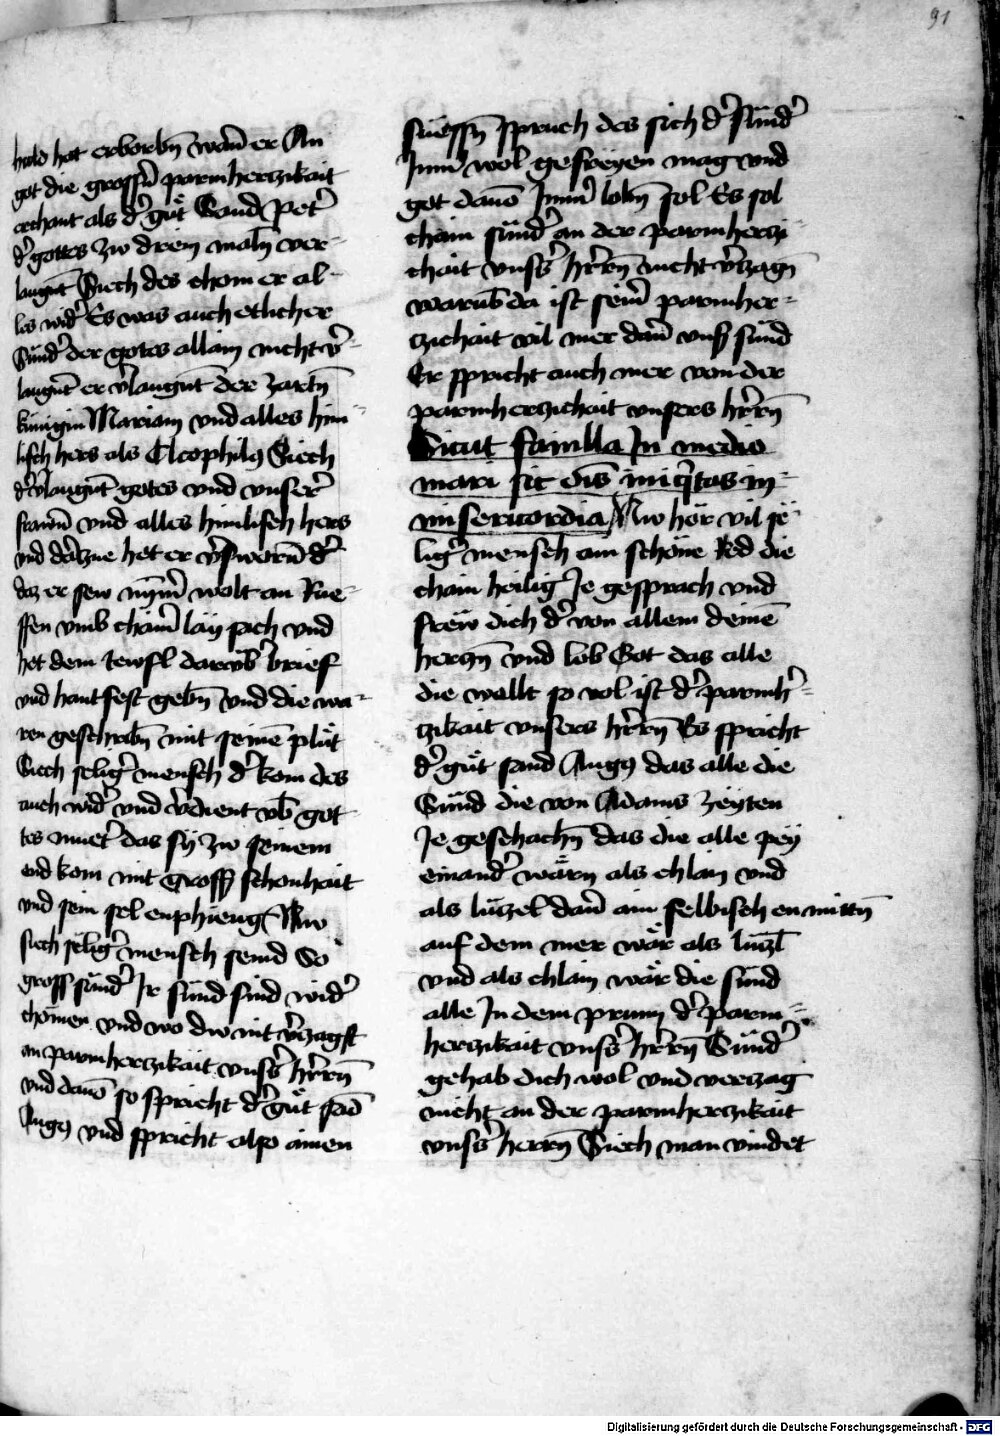 91
huld hat erborbn̄ wan̄ er An
got die grossn̄ parmherczikait
erchant als d̾ guͤt Sand Pet̾
d̾ gottes zw drein maln̄ ver-
laugnt̄ Siech des chom er al-
les wid̾ Es was auch etlicher
Sünd̾ der gotes allain nicht v̾-
laugnt̄ er v̾laugnt̄ der zartn̄
künigin Mariam vnd alles him-
lisch hers als Cleophilꝯ Siech
d̾ v̾laugnt̄ gotes vnd vnser̾
frawn̄ vnd alles himlisch hers
vnd het er v̾sworn̄ d̾
daz er sew nym̄̾ wolt an Rue-
ffen vmb chain̾ lay sach vnd
het dem tewfl darvb̾ brief
vnd hantfest gebn̄ vnd die wa-
ren geschribn̄ mit seinē pluͤt
Siech selig̾ mensch d̾ kom des
auch wid̾ vnd v̾dient vb̾ got
tes muet̾ das sy zw seinem
end kom mit grosß schonhait
vnd sein sel enphieng Nw
siech selig̾ mensch seind So
gross sünd̾ Jr sünd sind wid̾
chömen vnd wo dw nit v̾zagst
an parmherczikait vnss̾s hr̄rn̄
vnd dauō so spricht d̾ guͤt sād
Augꝯ vnd spricht also ainen
suessn̄ spruch des sich d̾ sünd̾
Jmm̾ wol gefreyen mag vnd
got dauō Jmm̾ lobn̄ sol Es sol
chain sünd̾ an der parmherczi-
chait vnss̾s hr̄rn̄ nicht v̾zagn̄
warūb da ist sein̾ parmher-
czichait vil mer dan̄ vnß sünd
Er spricht auch mer von der
parmherczichait vnsers hr̄rn̄
Sicut scintilla In medio
mari sic oīs iniq̄tas in
misericordia Nw hör vil se-
lig̾ mensch ain schöne Red die
chain heilig Je gesprach vnd
frew dich d̾ von allem deinē
herczn̄ vnd lob Got das alle
die wellt so vol ist d̾ parmh̾-
czikait vnsers hr̄rn̄ Es spricht
d̾ guͤt sand Augꝯ das alle die
Sünd die von Adams zeyten
Je geschachn̄ das die alle pey
einand̾ wärn als chlain vnd
als luczel dan̄ ain felbisch en mittn̄
auf dem mer wär als luczl̄
vnd als chlain wär die sünd
alle In dem prunn d̾ parm-
herczikait vnss̾s hr̄rn̄ Sünd̾
gehab dich wol vnd verczag
nicht an der parmherczikait
vnss̾s herrn̄ Siech man vindet
Digitalisierung gefördert durch die Deutsche Forschungsgemeinschaft - DFG